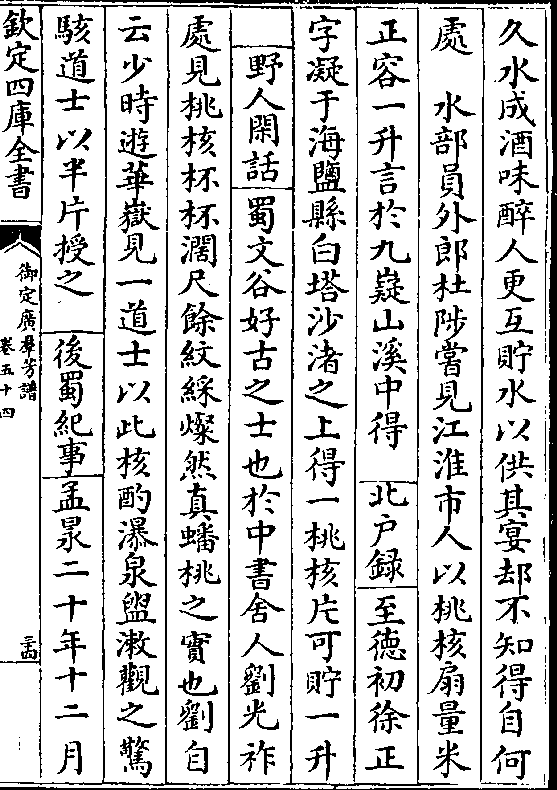 久水成酒味醉人更互貯水以供其宴却不知得自何
處　水部員外郎杜陟嘗見江淮市人以桃核扇量米
正容一升言於九嶷山溪中得　北户録　至德初徐正
字凝于海鹽縣白塔沙渚之上得一桃核片可貯一升
野人閑話　蜀文谷好古之士也於中書舍人劉光祚
處見桃核杯杯濶尺餘紋綵燦然真蟠桃之實也劉自
云少時遊華嶽見一道士以此核酌瀑泉盥漱觀之驚
駭道士以半片授之　後蜀紀事　孟㫤二十年十二月
欽定四庫全書
御定廣羣芳譜
卷五十四